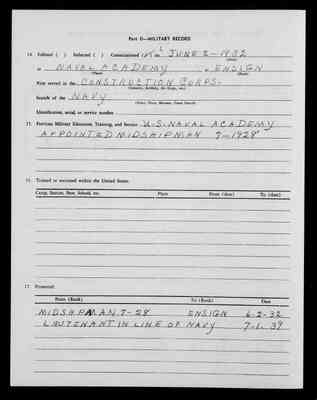 Part II—MILITARY RECORD
14. Enlisted ( ) Inducted ( ) Commissioned (✓) on JUNE 2 - 1932
(Date)
at NAVAL ACADEMY as ENSIGN
(Place) (Rank)
First served in the CONSTRUCTION CORPS.
Branch of the NAVY
Identification, serial, or service number
15. Previous Military Education, Training, and Service U.S. NAVAL ACADEMY
APPOINTED MIDSHIPMAN 7-1928
16. Trained or stationed within the United States:
Camp, Station, Base, School, etc. Place From (date) To (date)
17. Promoted:
From (Rank) To (Rank) Date
MIDSHIPMAN 7-28 ENSIGN 6-2-32
LIEUTENANT IN LINE OF NAVY 7-1-39